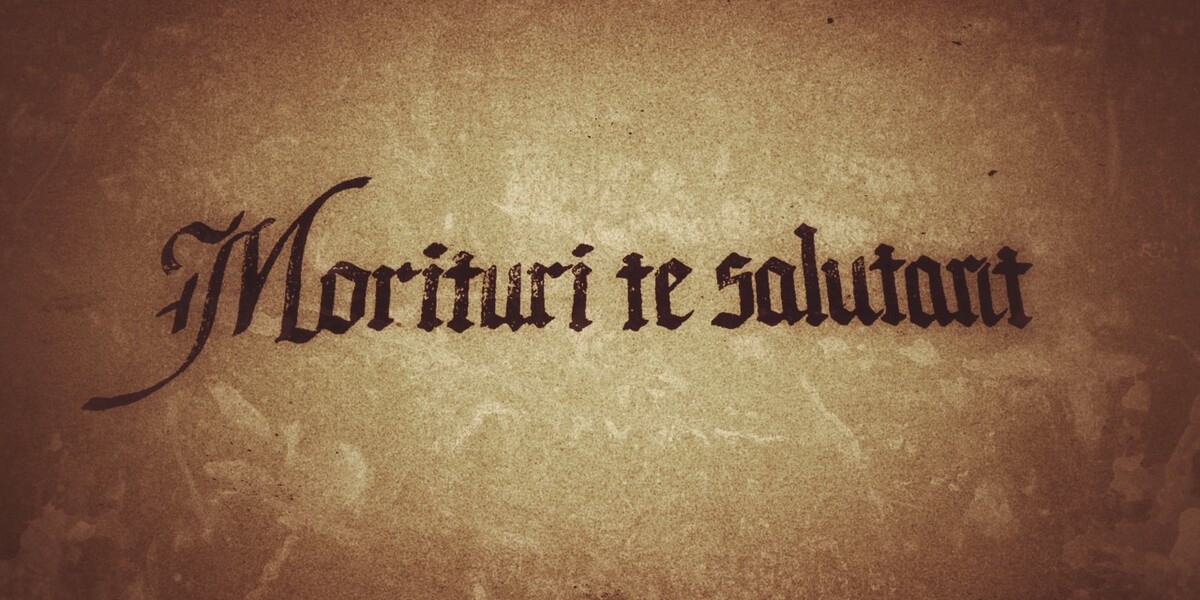 Morituri te salutant